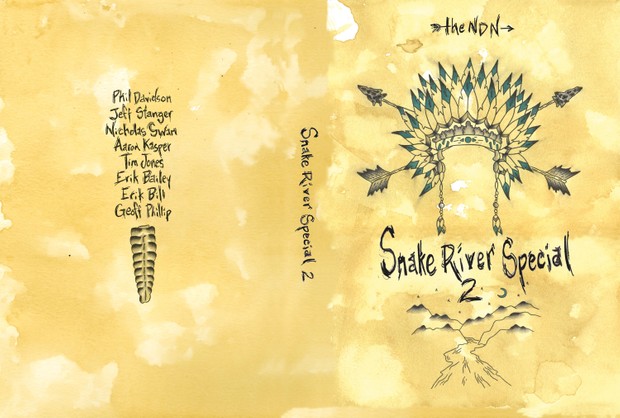 Phil Davidson
Jeff Stanger
Nicholas Swan
Aaron Kasper
Tim Jones
Erik Bailey
Erik Bill
Geoff Phillip
Snake River Special 2
the NDN
Snake River Special
2